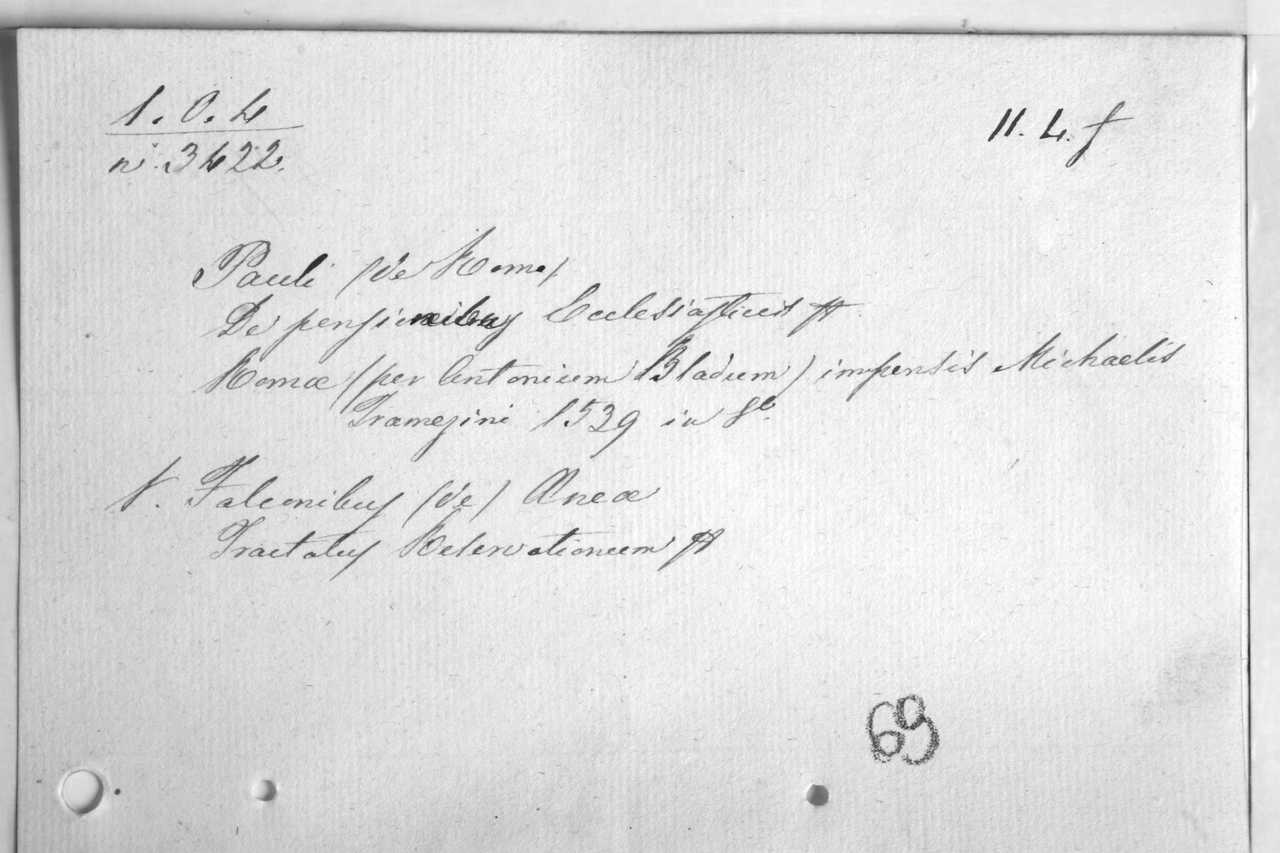 1. 0. 4
n. 3422.
11. 4. f
Pauli (de Roma)
De pensionibus Ecclesiasticis
Romæ (per Antonium Bladum) impensis Michaelis
Tramezini 1539 in 8º
V. Falconibus (de) Æneæ
Tractatus Reservationum
69